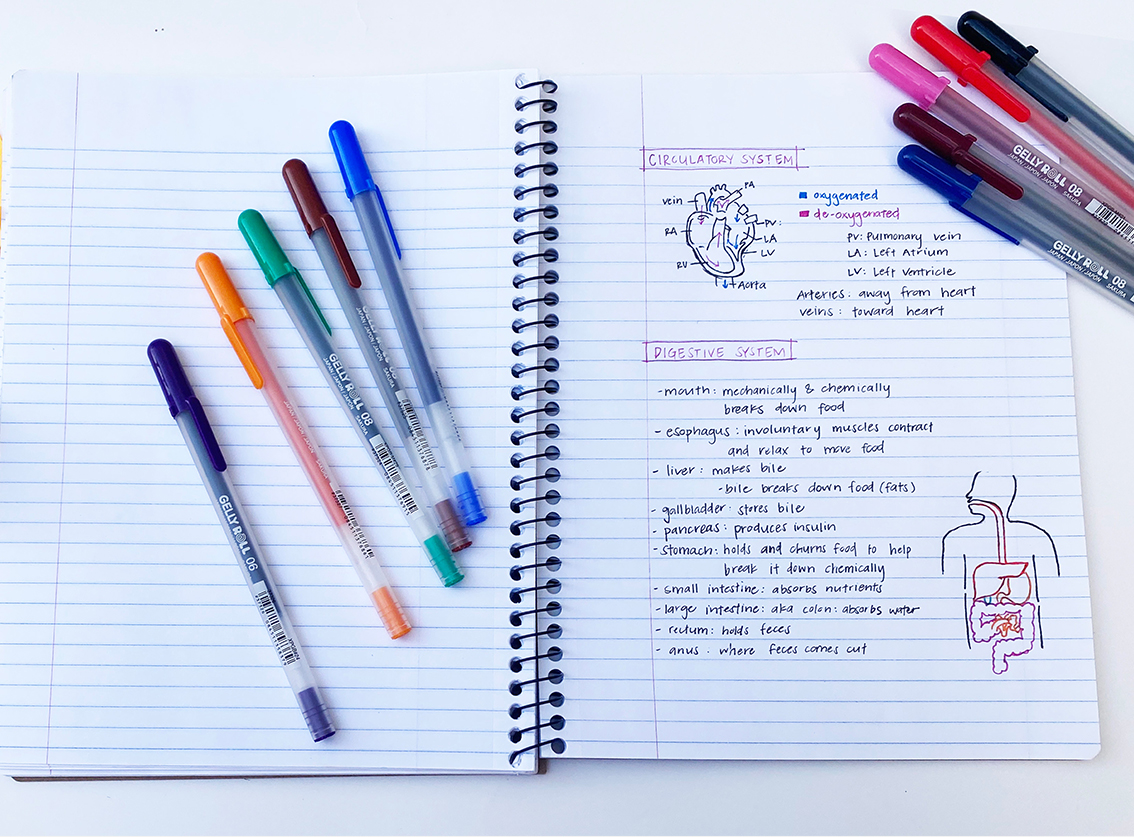 CIRCULATORY SYSTEM
vein
PA
RA
PV:
LA
LV
RV
Aorta
oxygenated
de-oxygenated
PV: Pulmonary vein
LA: Left Atrium
LV: Left Ventricle
Arteries: away from heart
veins: toward heart
DIGESTIVE SYSTEM
- mouth: mechanically & chemically
breaks down food
- esophagus: involuntary muscles contract
and relax to move food
- liver: makes bile
- bile breaks down food (fats)
- gallbladder: stores bile
- pancreas: produces insulin
- stomach: holds and churns food to help
break it down chemically
- small intestine: absorbs nutrients
- large intestine: aka colon: absorbs water
- rectum: holds feces
- anus: where feces comes out
GELLY ROLL 06
GELLY ROLL 08
JAPAN/JAPON/JAPÓN SAKURA
GELLY ROLL 08
JAPAN/JAPON/JAPÓN SAKURA
GELLY ROLL 08
JAPAN/JAPON/JAPÓN SAKURA